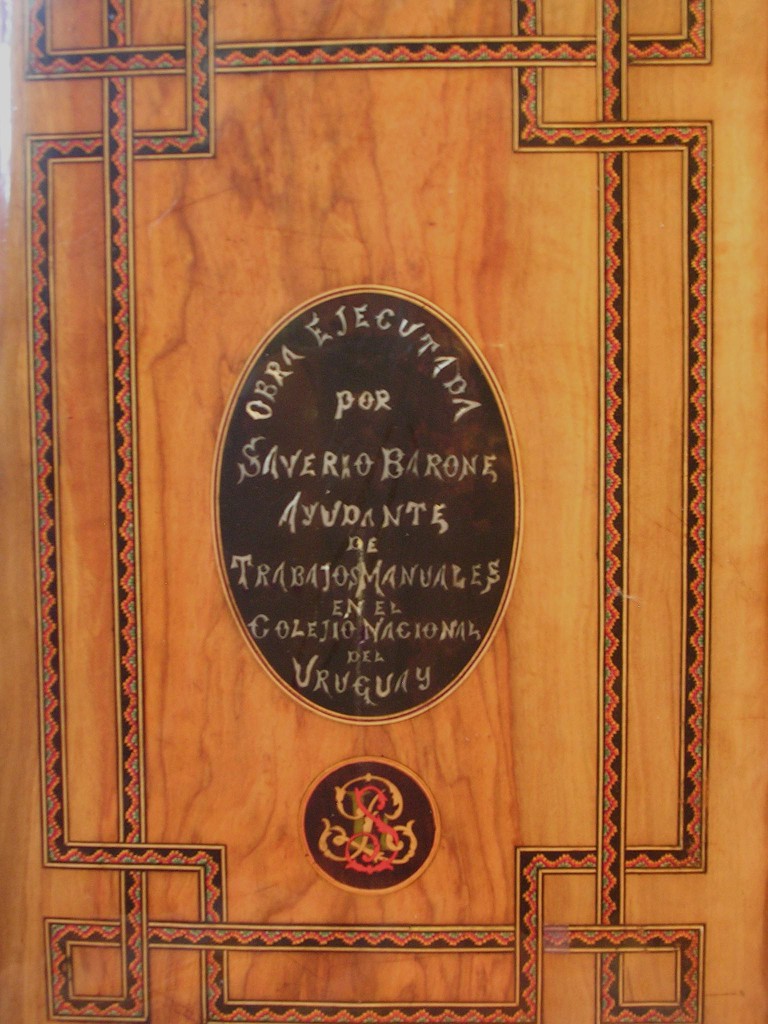 OBRA EJECUTADA
POR
SAVERIO BARONE
AYUDANTE
DE
TRABAJOS MANUALES
EN EL
COLEJIO NACIONAL
DEL
URUGUAY